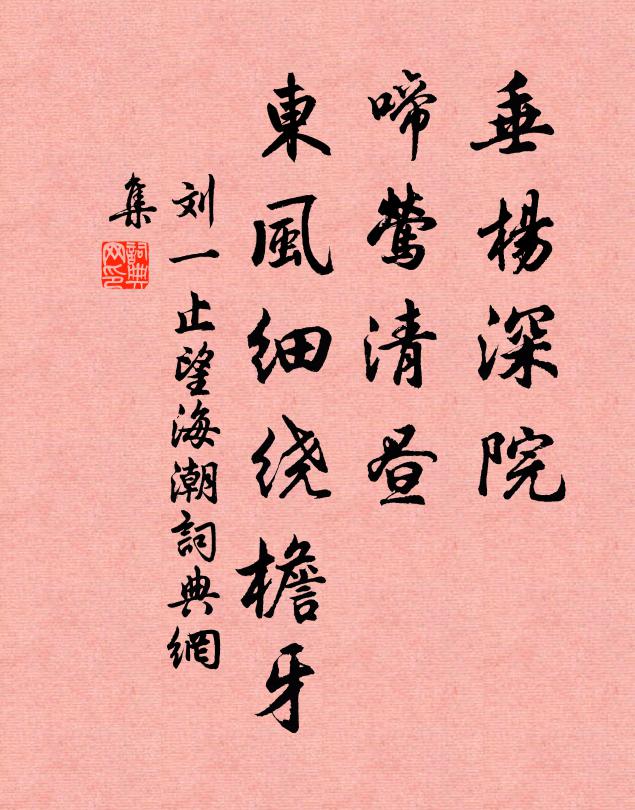 垂楊深院
啼鶯清昼
東風細绕檐牙
刘一止望海潮詞典網
集
詞典网印